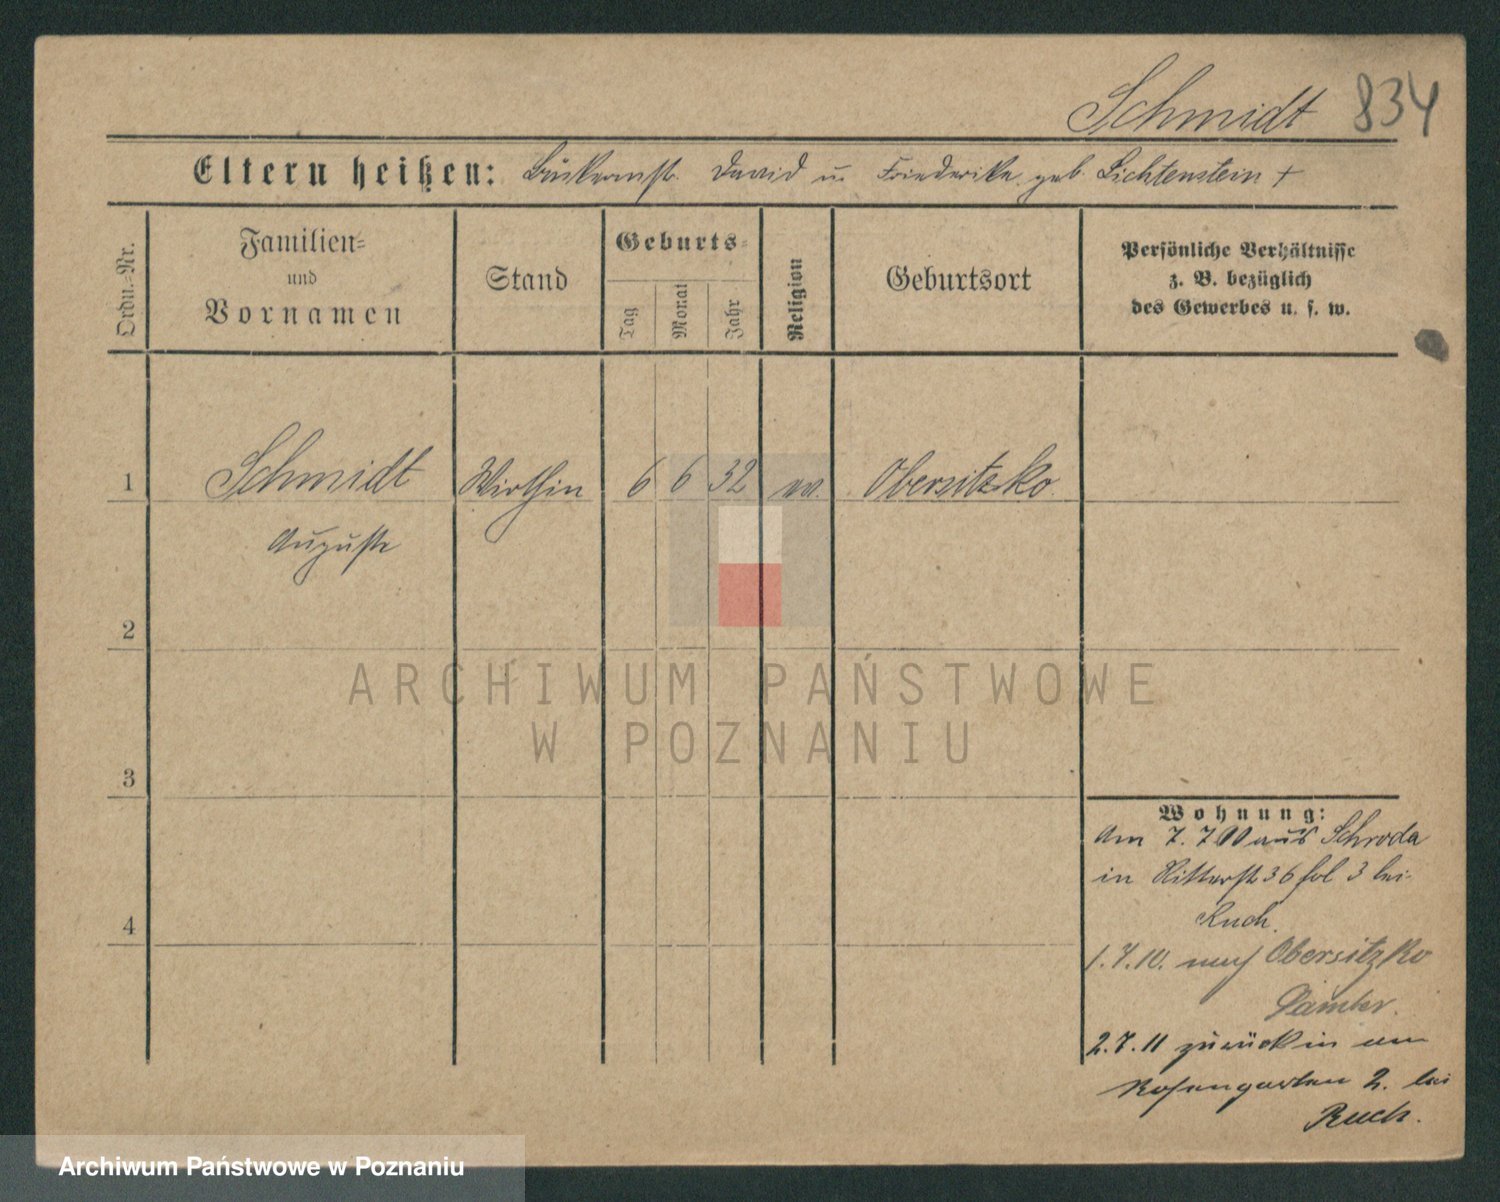 Schmidt 834
Eltern heißen: David u Friederike geb. Lichtenstein +
Ordn.-Nr.
Familien-
und
Vornamen
Stand
Geburts-
Tag
Monat
Jahr
Religion
Geburtsort
Persönliche Verhältnisse
z. B. bezüglich
des Gewerbes u. s. w.
1 Schmidt Wirthin 6 6 32 Obersitzko
Auguste
2
3
4
Wohnung:
Am 7. 7 00 aus Schroda
in Ritterstr 36 fol 3 bei
Ruch.
1.7.10. nach Obersitzko
Samter.
2.7.11 zurück in
Rosengarten 2. bei
Ruch.
ARCHIWUM PAŃSTWOWE
W POZNANIU
Archiwum Państwowe w Poznaniu